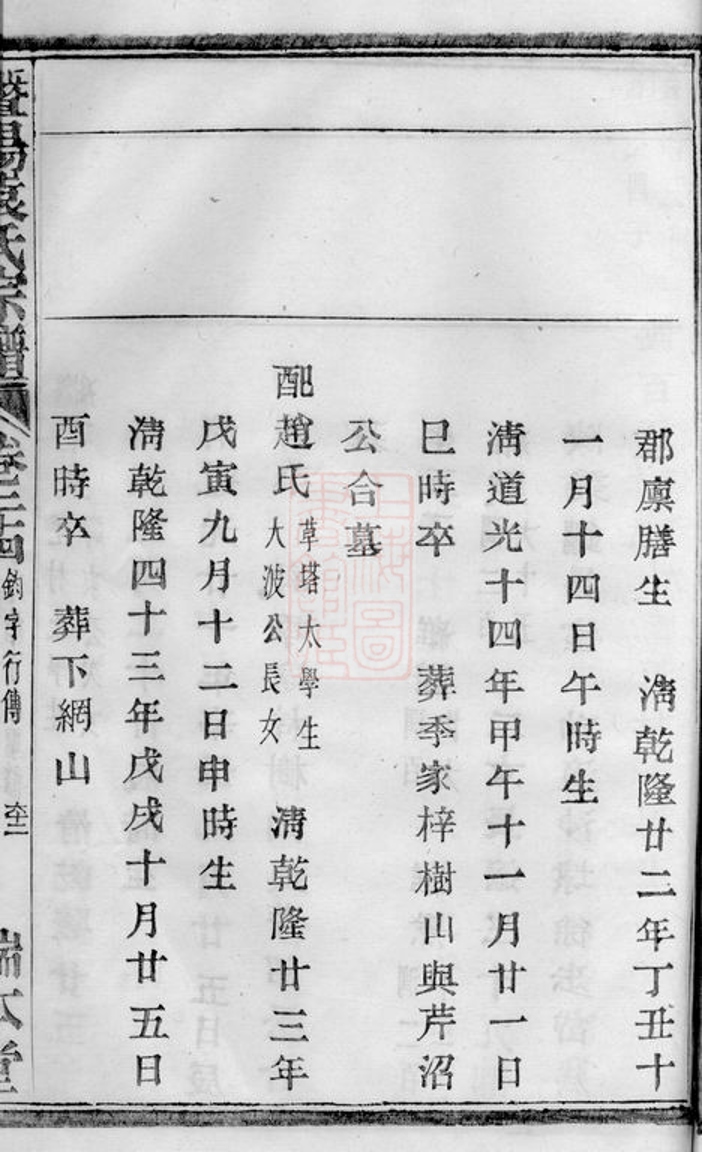 郡廪膳生　清乾隆廿二年丁丑十
一月十四日午時生
清道光十四年甲午十一月廿一日
巳時卒　葬季家梓樹山與芹沼
公合墓
配趙氏草塔太學生大波公長女　清乾隆廿三年
戊寅九月十二日申時生
清乾隆四十三年戊戌十月廿五日
酉時卒　葬下網山
暨陽袁氏宗譜
卷三十四　鈞字行傳